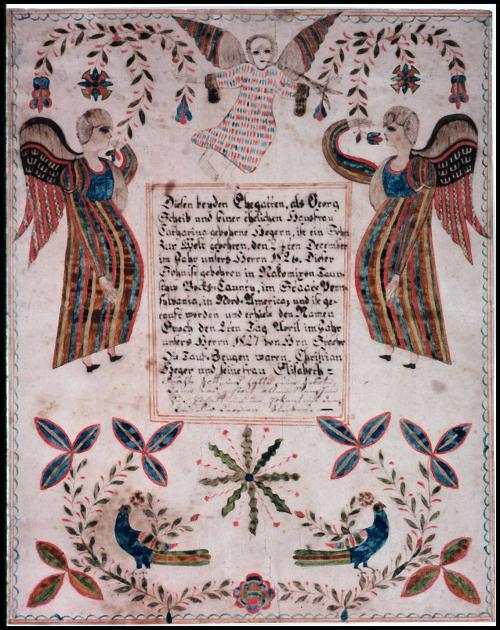 Diesen beyden Ehegatten, als Georg
Scheib und seiner ehelichen Hausfrau
Catharina gebohrne Hegern, ist ein Sohn
zur Welt gebohren, den 24ten December
im Jahr unsers Herrn 1826. Dieser
Sohn ist gebohren in Nakomixon Taun-
schip Bocks-Caunty, im Staate Penn
sylvania, in Nord-America; und ist ge-
tauft worden und erhielt den Namen
Enoch den 2ten Tag April im Jahr
unsers Herrn 1827 von Hrn
Die Tauf-Zeugen waren, Christian
Heger und seine frau Elisabeth =